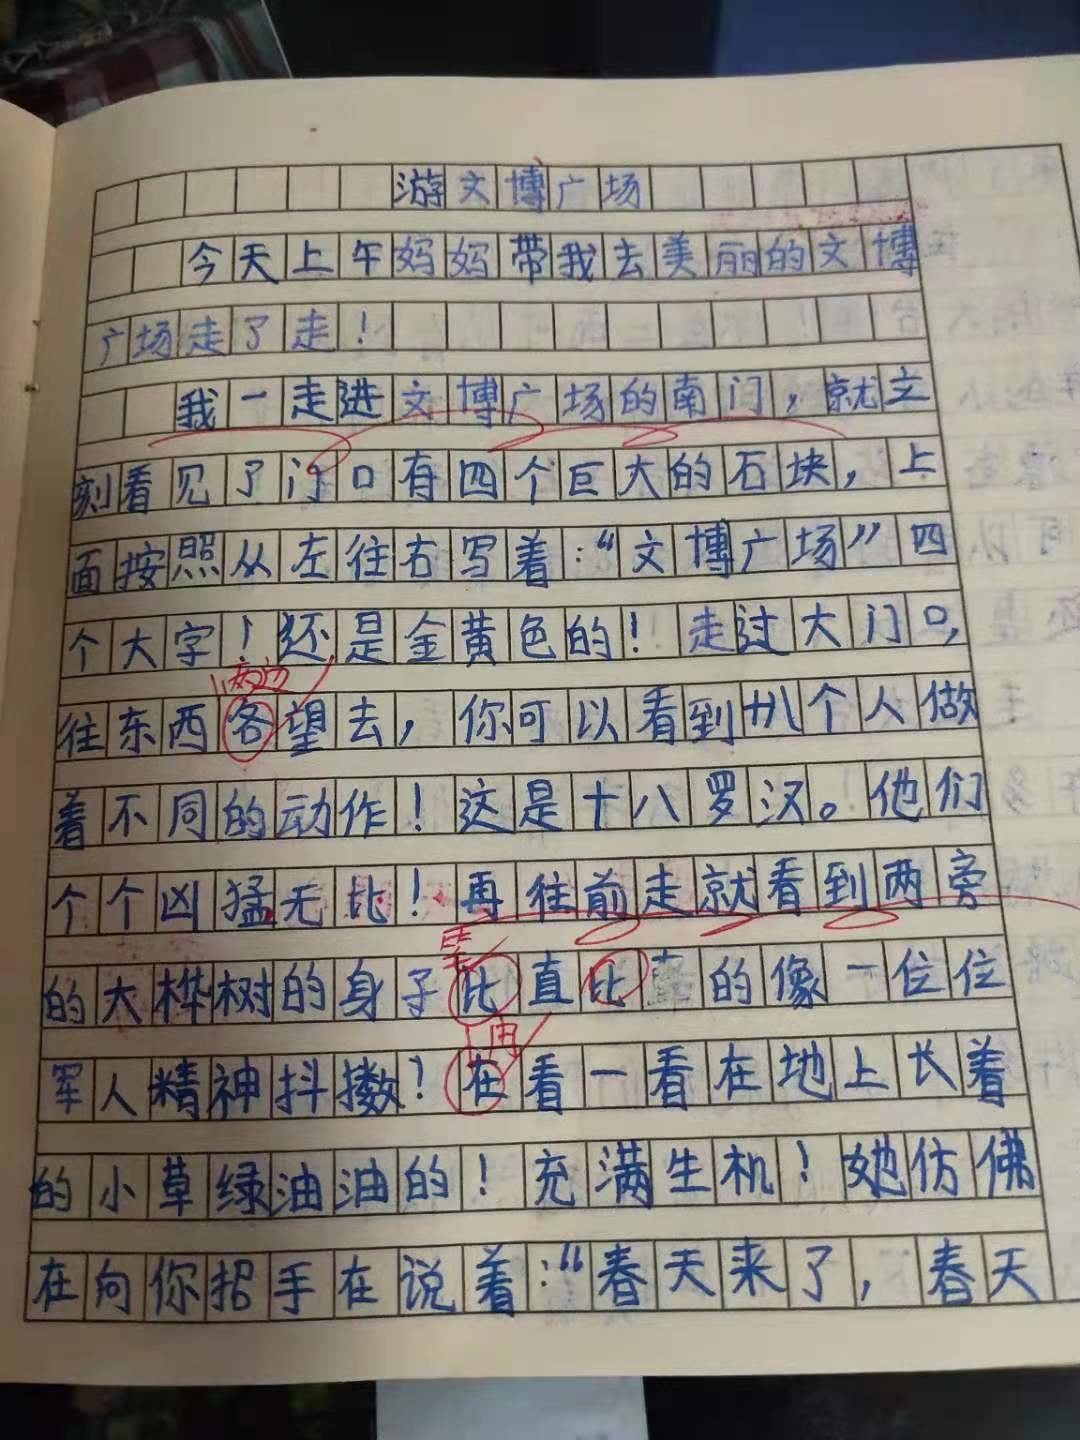 游文博广场
今天上午妈妈带我去美丽的文博
广场走了走！
我一走进文博广场的南门，就立
刻看见了门口有四个巨大的石块，上
面按照从左往右写着：“文博广场”四
个大字！还是金黄色的！走过大门口，
两边
往东西各望去，你可以看到十八个人做
着不同的动作！这是十八罗汉。他们
个个凶猛无比！再往前走就看到两旁
毕
的大桦树的身子比直比直的像一位位
再
军人精神抖擞！在看一看在地上长着
的小草绿油油的！充满生机！她仿佛
在向你招手在说着：“春天来了，春天